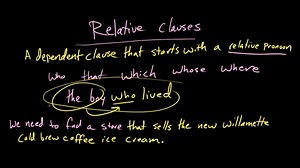 Relative Clauses
A dependent clause that starts with a relative pronoun
who that which whose where
the boy who lived
We need to find a store that sells the new Willamette
cold brew coffee ice cream.